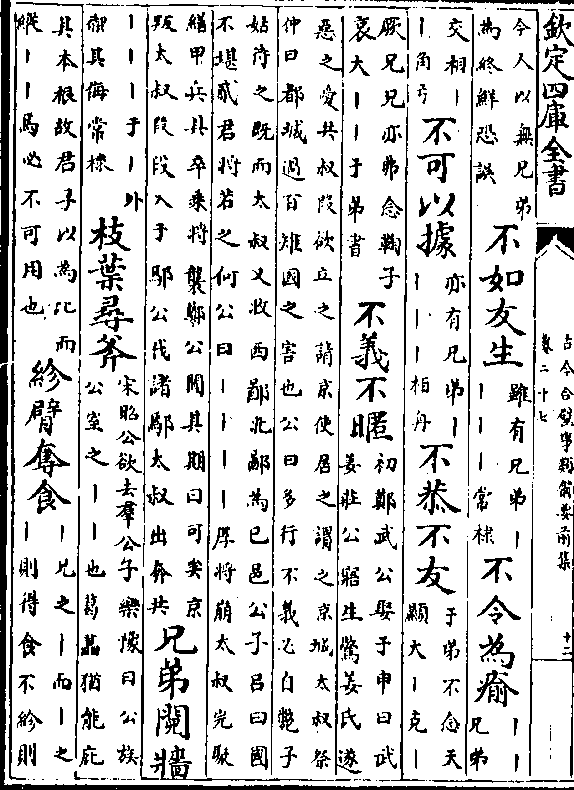 欽定四庫全書
古今合璧事類備要前集
卷二十七
十二
今人以無兄弟
為終鮮恐誤
不如友生
雖有兄弟｜
｜｜｜常棣
不令為瘉
｜｜
兄弟
交相｜
｜角弓
不可以據
亦有兄弟｜
｜｜｜柏舟
不恭不友
于弟不念天
顯大｜克｜
厥兄兄亦弗念鞠子
哀大｜｜于弟書
不義不暱
初鄭武公娶于申曰武
姜莊公寤生驚姜氏遂
惡之愛共叔段欲立之請京使居之謂之京城太叔祭
仲曰都城過百雉國之害也公曰多行不義必自斃子
姑待之既而太叔又收西鄙北鄙為已邑公子吕曰國
不堪貳君將若之何公曰｜｜｜｜厚將崩太叔完聚
繕甲兵具卒乗將襲鄭公聞其期曰可矣京
叛太叔段段入于鄢公伐諸鄢太叔出奔共
兄弟鬩牆
｜｜｜｜于｜外
禦其侮常棣
枝葉尋斧
宋昭公欲去羣公子樂豫曰公族
公室之｜｜也葛藟猶能庇
其本根故君子以為比而
縱｜｜焉必不可用也
紾臂奪食
｜兄之｜而｜之
｜則得食不紾則